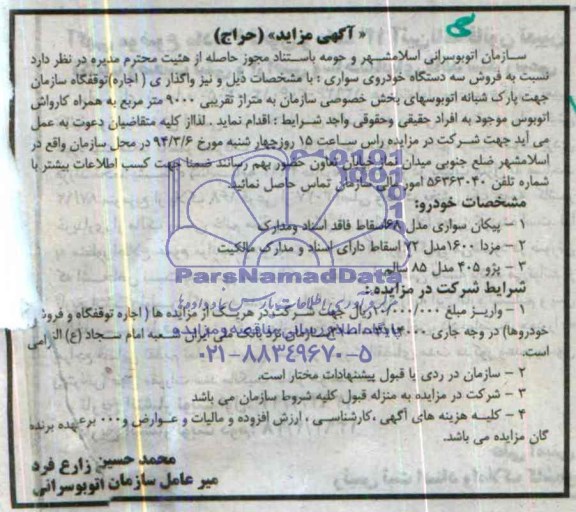 « آگهی مزایده» (حراج)
سازمان اتوبوسرانی اسلامشهر و حومه باستناد مجوز حاصله از هئیت محترم مدیره در نظر دارد
نسبت به فروش سه دستگاه خودروی سواری : با مشخصات ذیل و نیز واگذاری ( اجاره)توقفگاه سازمان
جهت پارک شبانه اتوبوسهای بخش خصوصی سازمان به متراژ تقریبی ۹۰۰۰ متر مربع به همراه کارواش
اتوبوس موجود به افراد حقیقی وحقوقی واجد شرایط : اقدام نماید . لذااز کلیه متقاضیان دعوت به عمل
می آید جهت شرکت در مزایده راس ساعت ۱۵ روزچهار شنبه مورخ ۹۴/۳/۶ در محل سازمان واقع در
اسلامشهر ضلع جنوبی میدان تعاون حضور بهم رسانند ضمنا جهت کسب اطلاعات بیشتر با
شماره تلفن ۵۶۳۶۳۰۴۰ امور مالی سازمان تماس حاصل نمائید.
مشخصات خودرو:
۱ – پیکان سواری مدل ۶۸اسقاط فاقد اسناد ومدارک
۲ – مزدا ۱۶۰۰مدل ۷۲ اسقاط دارای اسناد و مدارک مالکیت
ParsNamadData
۳ – پژو ۴۰۵ مدل ۸۵ سالم
شرایط شرکت در مزایده:
۱ – واریز مبلغ ۱۰/۰۰۰/۰۰۰ریال جهت شرکت در هریک از مزایده ها ( اجاره توقفگاه و فروش
خودروها) در وجه جاری سازمان نزد بانک ملی ایران شعبه امام سجاد (ع) الزامی
است.
۰۲۱-۸۸۳۴۹۶۷۰-۵
۲ – سازمان در ردی یا قبول پیشنهادات مختار است.
۳ – شرکت در مزایده به منزله قبول کلیه شروط سازمان می باشد
۴ – کلیه هزینه های آگهی ،کارشناسی ، ارزش افزوده و مالیات و عوارض و۰۰۰ برعهده برنده
گان مزایده می باشد.
محمد حسین زارع فرد
میر عامل سازمان اتوبوسرانی